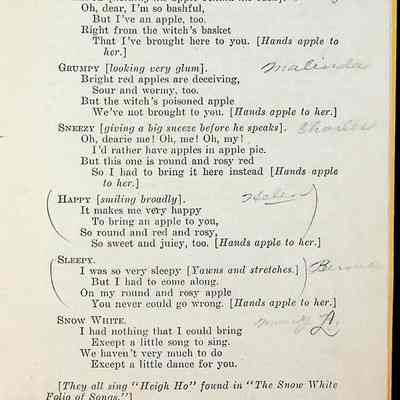 Oh, dear, I'm so bashful,
But I've an apple, too.
Right from the witch's basket
That I've brought here to you. [Hands apple to
her.]
GRUMPY [looking very glum]. Malinda
Bright red apples are deceiving,
Sour and wormy, too.
But the witch's poisoned apple
We've not brought to you. [Hands apple to her.]
SNEEZY [giving a big sneeze before he speaks]. Charles
Oh, dearie me! Oh, me! Oh, my!
I'd rather have apples in apple pie.
But this one is round and rosy red
So I had to bring it here instead [Hands apple
to her.]
HAPPY [smiling broadly]. Helen
It makes me very happy
To bring an apple to you,
So round and red and rosy,
So sweet and juicy, too. [Hands apple to her.]
SLEEPY.
I was so very sleepy [Yawns and stretches.]
But I had to come along.
On my round and rosy apple
You never could go wrong. [Hands apple to her.]
SNOW WHITE.
I had nothing that I could bring
Except a little song to sing.
We haven't very much to do
Except a little dance for you.
[They all sing "Heigh Ho" found in "The Snow White
Folio of Songs."]